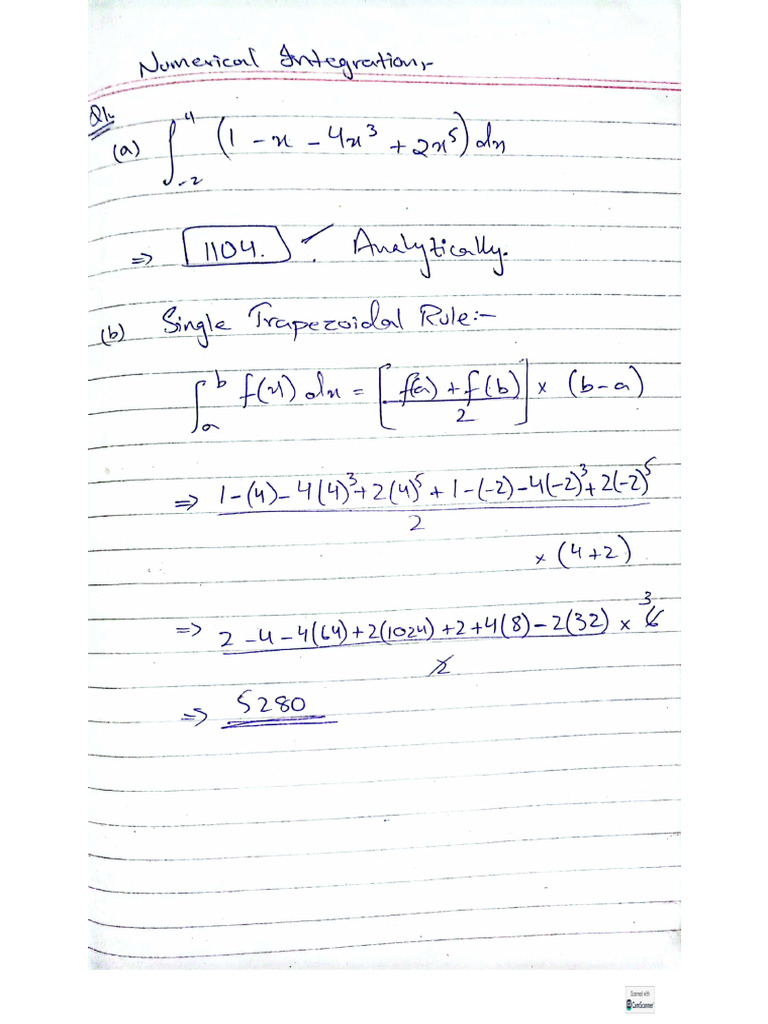 Numerical Integration:-
Q1:
(a) ∫₋₂⁴ (1 - x - 4x³ + 2x⁵) dx
⇒ 1104. ✓ Analytically.
(b) Single Trapezoidal Rule:-
∫ₐᵇ f(x) dx = [f(a) + f(b) / 2] × (b - a)
⇒ 1 - (4) - 4(4)³ + 2(4)⁵ + 1 - (-2) - 4(-2)³ + 2(-2)⁵ / 2
× (4 + 2)
⇒ 2 - 4 - 4(64) + 2(1024) + 2 + 4(8) - 2(32) / 2 × 6 3
⇒ 5280
Scanned with
CamScanner